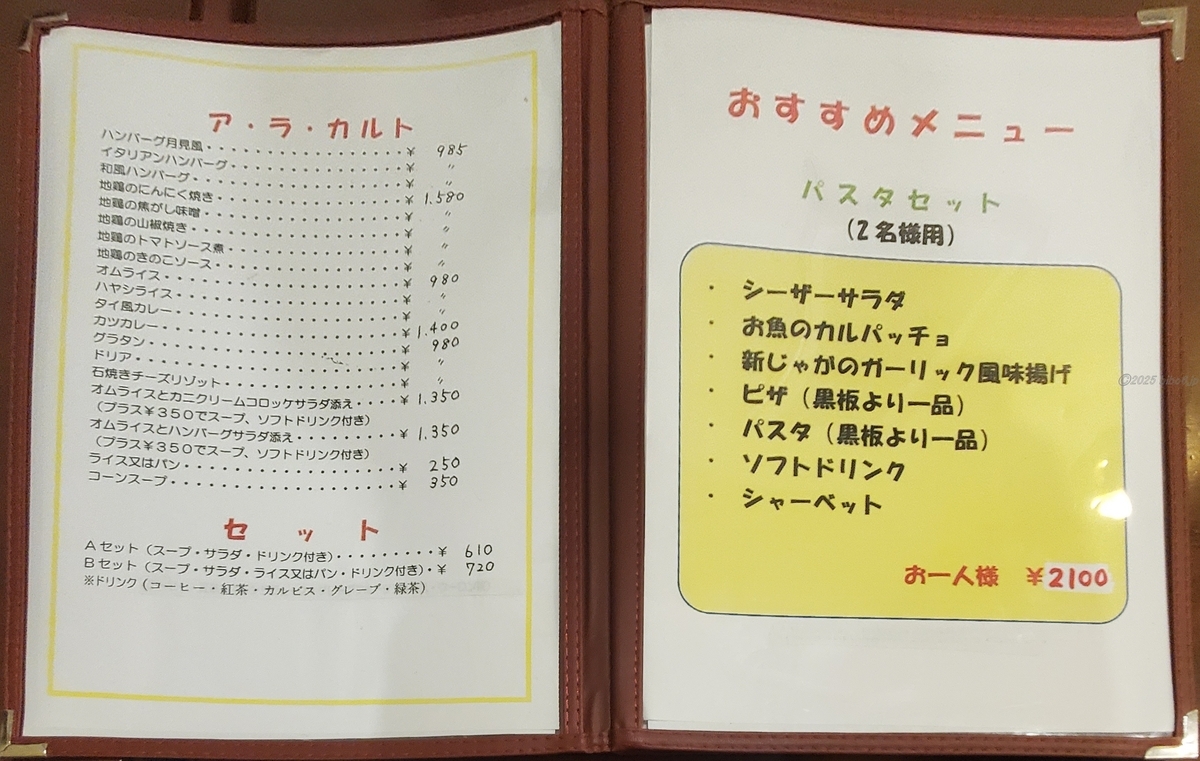 ア・ラ・カルト
ハンバーグ月見風・・・・・・・・・・・・・・・・・・¥ 985
イタリアンハンバーグ・・・・・・・・・・・・・・・・¥ 〃
和風ハンバーグ・・・・・・・・・・・・・・・・・・・¥ 〃
地鶏のにんにく焼き・・・・・・・・・・・・・・・・・¥ 1.580
地鶏の焦がし味噌・・・・・・・・・・・・・・・・・・¥ 〃
地鶏の山椒焼き・・・・・・・・・・・・・・・・・・・¥ 〃
地鶏のトマトソース煮・・・・・・・・・・・・・・・・¥ 〃
地鶏のきのこソース・・・・・・・・・・・・・・・・・¥ 〃
オムライス・・・・・・・・・・・・・・・・・・・・・¥ 980
ハヤシライス・・・・・・・・・・・・・・・・・・・・¥ 〃
タイ風カレー・・・・・・・・・・・・・・・・・・・・¥ 〃
カツカレー・・・・・・・・・・・・・・・・・・・・・¥ 1.400
グラタン・・・・・・・・・・・・・・・・・・・・・・¥ 980
ドリア・・・・・・・・・・・・・・・・・・・・・・・¥ 〃
石焼きチーズリゾット・・・・・・・・・・・・・・・・¥ 〃
オムライスとカニクリームコロッケサラダ添え・・・・¥ 1.350
（プラス¥350でスープ、ソフトドリンク付き）
オムライスとハンバーグサラダ添え・・・・・・・・・・¥ 1.350
（プラス¥350でスープ、ソフトドリンク付き）
ライス又はパン・・・・・・・・・・・・・・・・・・・¥ 250
コーンスープ・・・・・・・・・・・・・・・・・・・・¥ 350
セット
Aセット（スープ・サラダ・ドリンク付き）・・・・・・・・・¥ 610
Bセット（スープ・サラダ・ライス又はパン・ドリンク付き）・¥ 720
※ドリンク（コーヒー・紅茶・カルピス・グレープ・緑茶）
おすすめメニュー
パスタセット
（2名様用）
・ シーザーサラダ
・ お魚のカルパッチョ
・ 新じゃがのガーリック風味揚げ
・ ピザ（黒板より一品）
・ パスタ（黒板より一品）
・ ソフトドリンク
・ シャーベット
お一人様 ¥2100